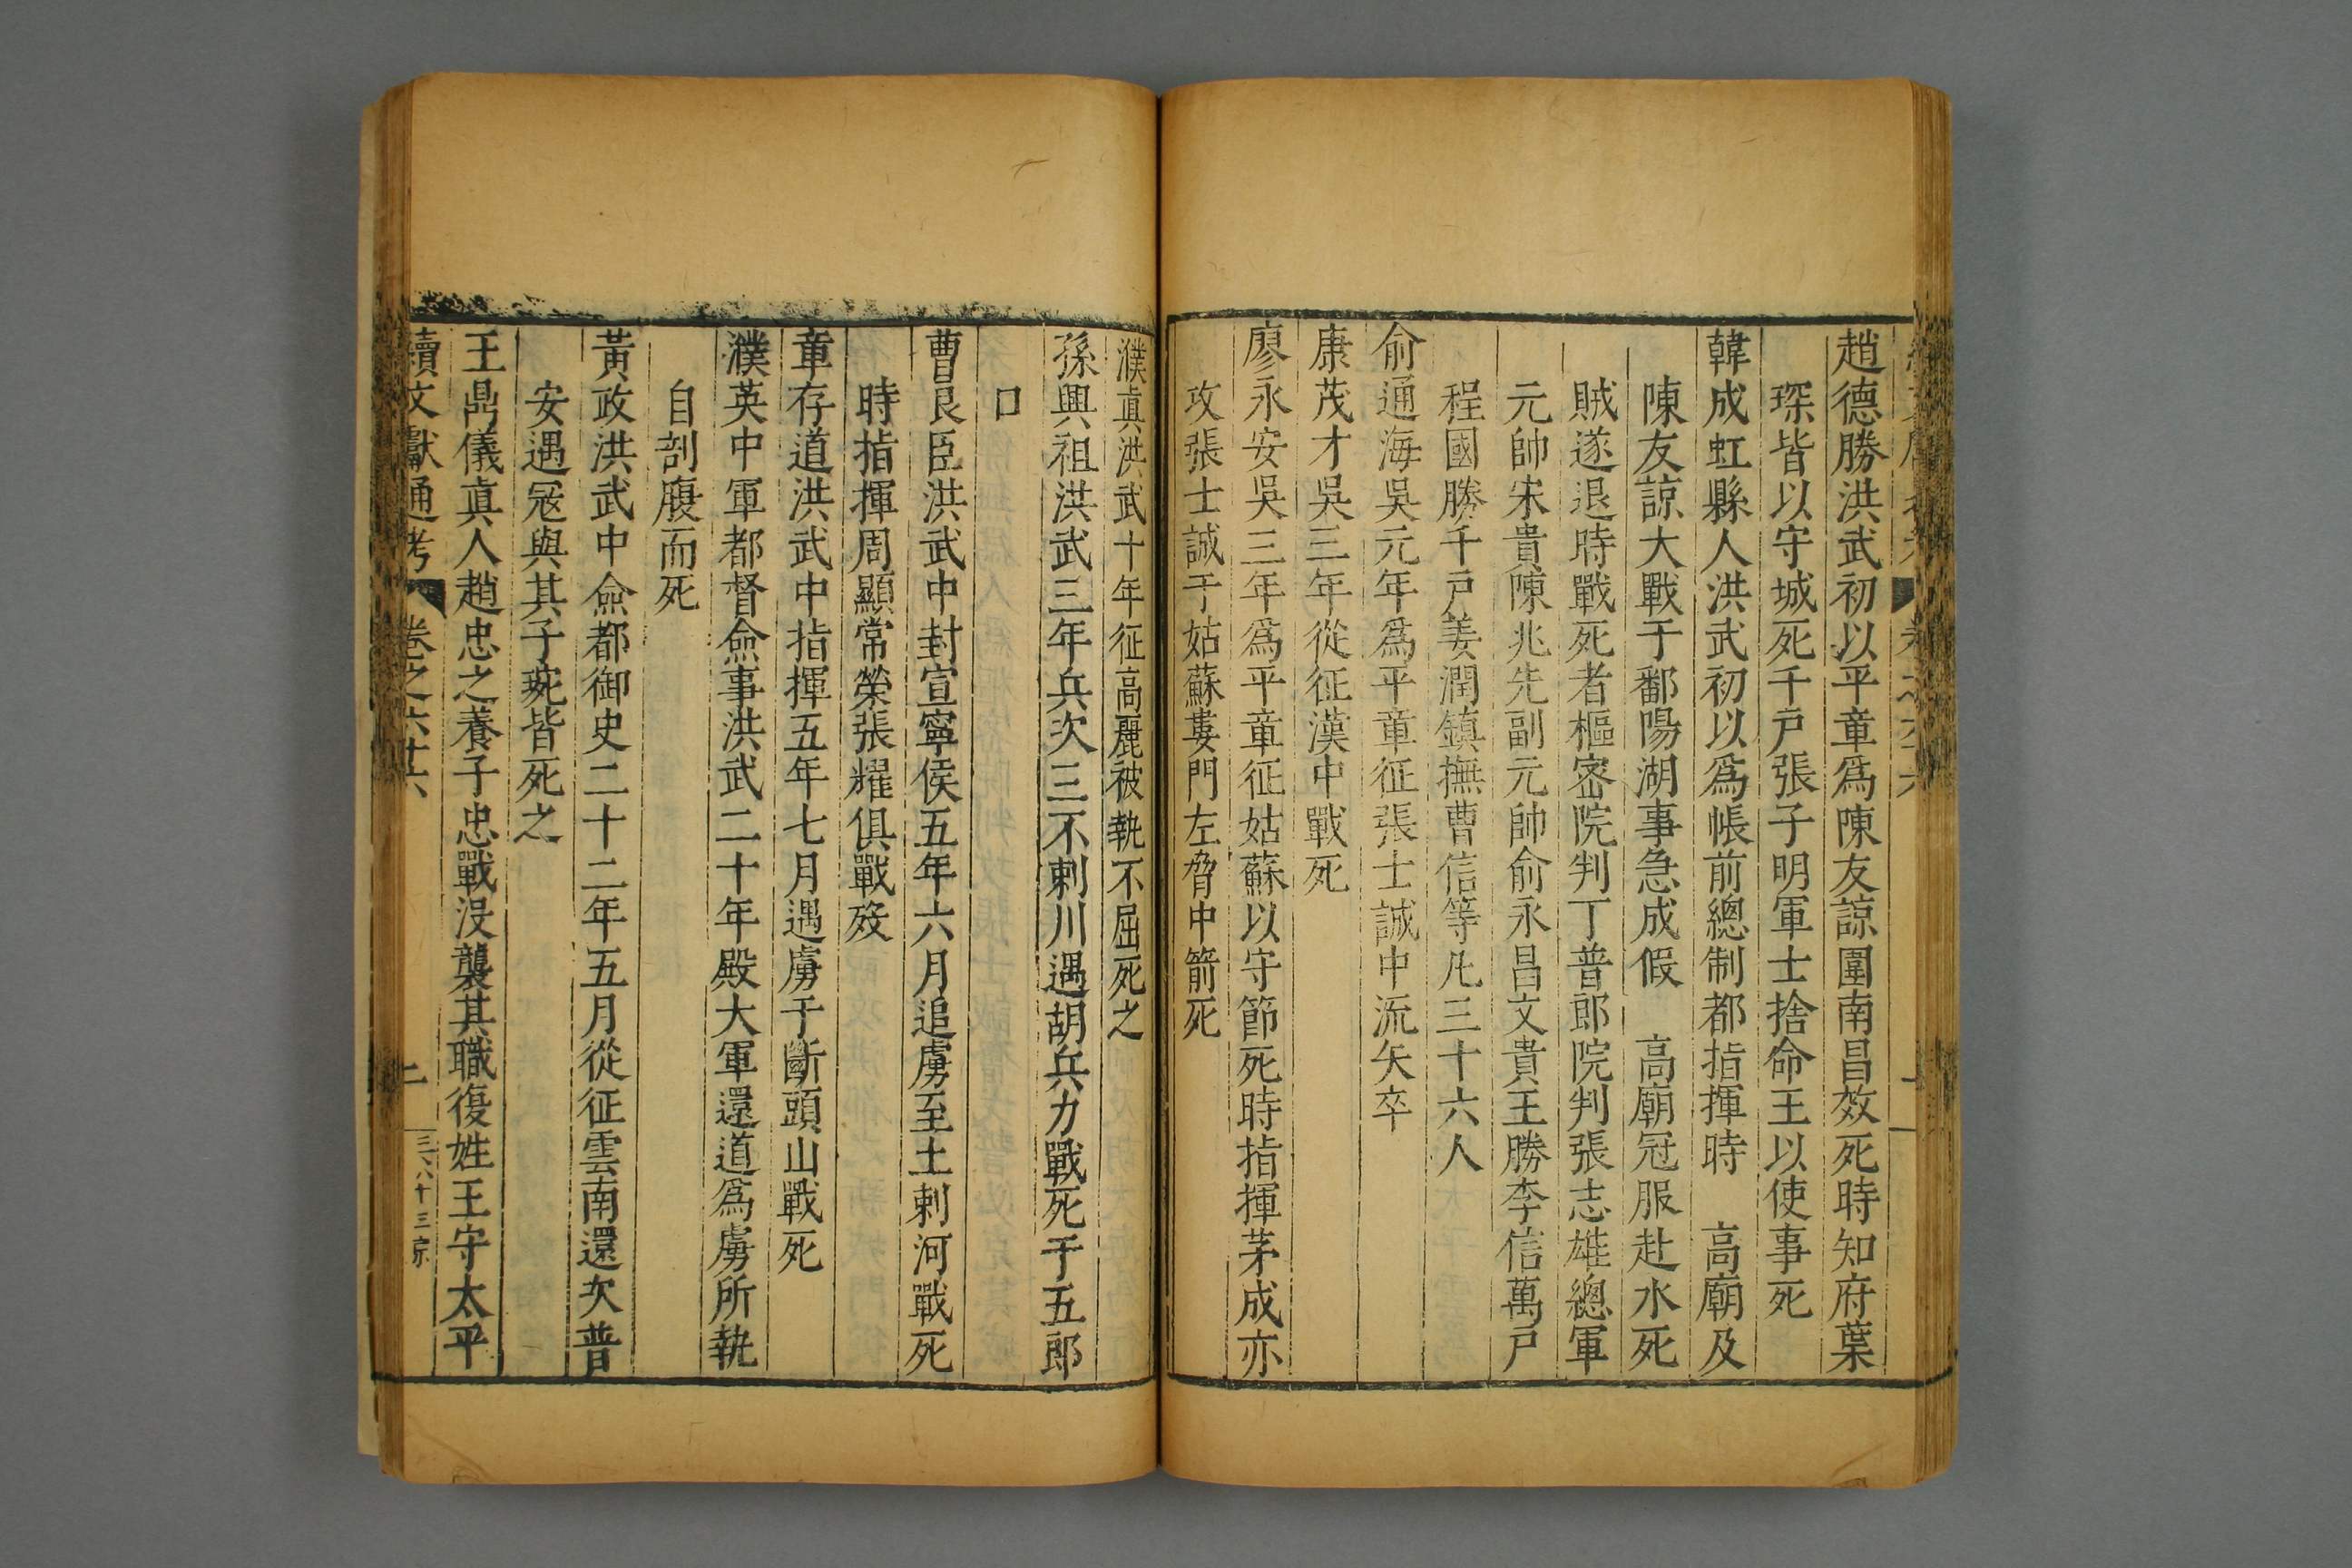 趙德勝洪武初以平章爲陳友諒圍南昌效死時知府葉
琛皆以守城死千戸張子明軍士捨命王以使事死
韓成虹縣人洪武初以爲帳前總制都指揮時　高廟及
陳友諒大戰于鄱陽湖事急成假　高廟冠服赴水死
賊遂退時戰死者樞宻院判丁普郎院判張志雄總軍
元帥宋貴陳兆先副元帥俞永昌文貴王勝李信萬戸
程國勝千戸姜潤鎮撫曹信等凡三十六人
俞通海吳元年爲平章征張士誠中流矢卒
康茂才吳三年從征漢中戰死
廖永安吳三年爲平章征姑蘇以守節死時指揮茅成亦
攻張士誠于姑蘇婁門左脅中箭死
濮真洪武十年征高麗被執不屈死之
孫興祖洪武三年兵次三不剌川遇胡兵力戰死于五郎
口
曹良臣洪武中封宣寧侯五年六月追虜至土剌河戰死
時指揮周顯常榮張耀俱戰歿
章存道洪武中指揮五年七月遇虜于斷頭山戰死
濮英中軍都督僉事洪武二十年殿大軍還道爲虜所執
自剖腹而死
黃政洪武中僉都御史二十二年五月從征雲南還次普
安遇冦與其子琬皆死之
王鼎儀真人趙忠之養子忠戰没襲其職復姓王守太平
續文獻通考　卷之六十六　二　三〺六十三宗